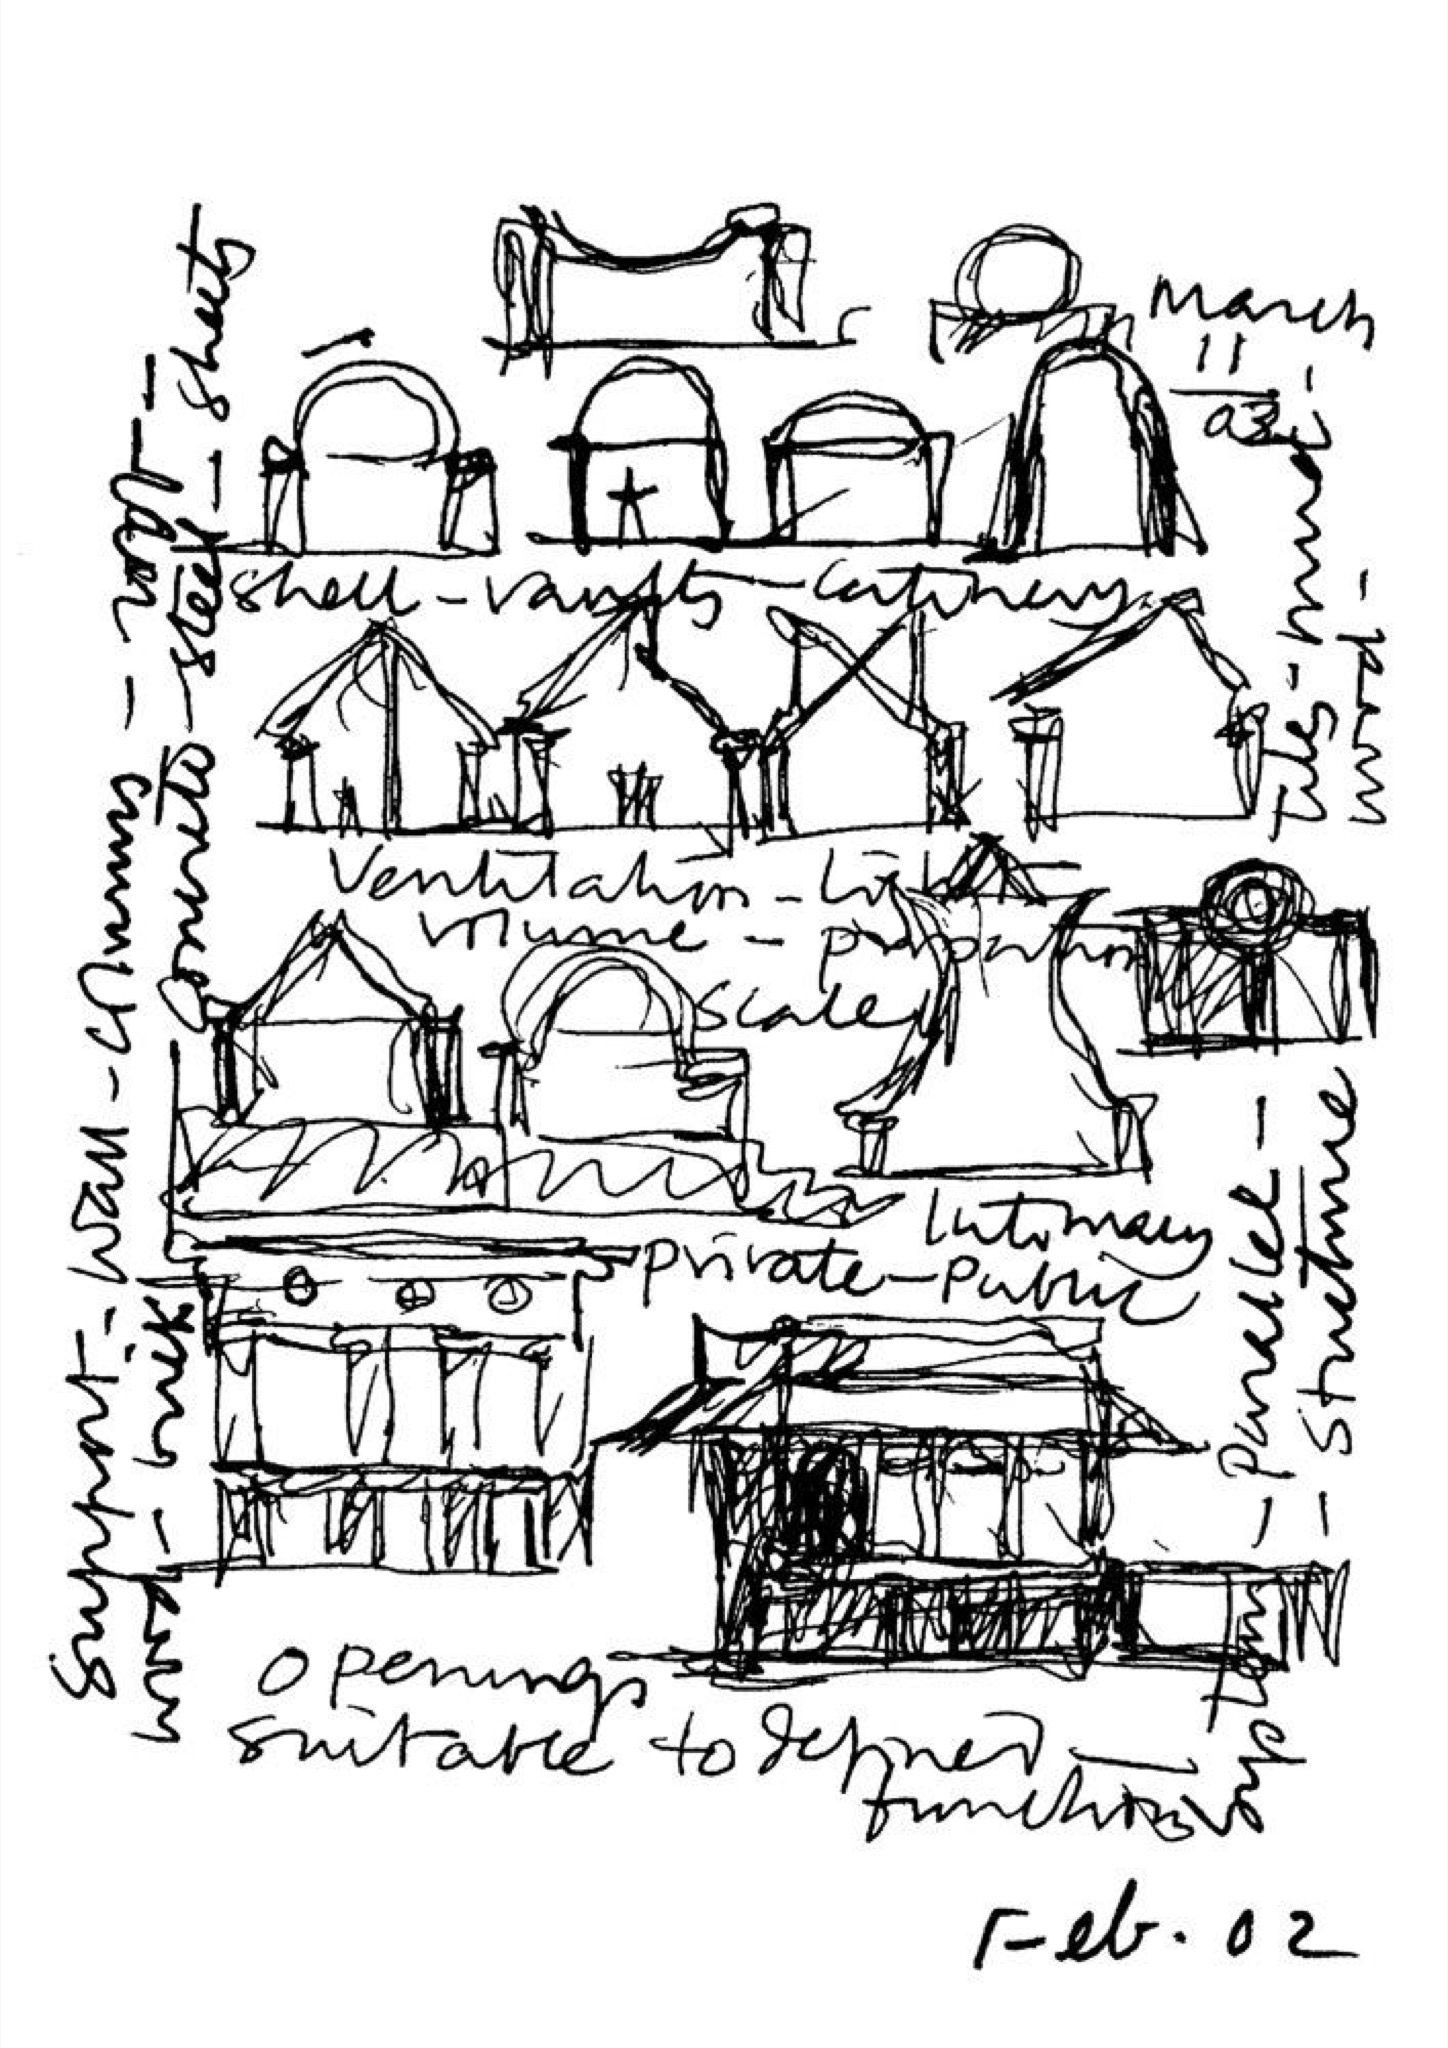 March
11
03
shell - vaults - Catinery
Ventilation - Li
volume - proportion
Scale
Intimacy
private - Public
Openings
suitable to defined
functions
Support - Wall - Clumns - - roof -
wood - brick - Concrete - steel - sheets
Tiles - mud -
wood -
system - Parallel -
- structure
Feb. 02